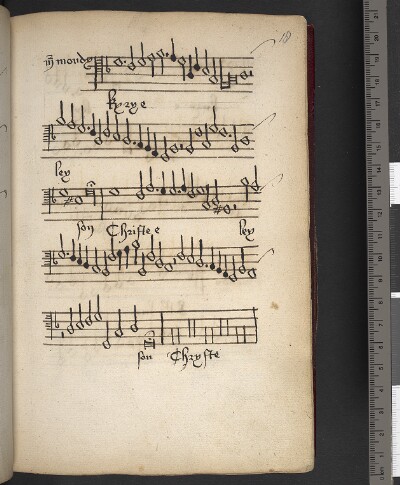 18
mondy
kyrye
ley
son Christe e ley
son Chryste